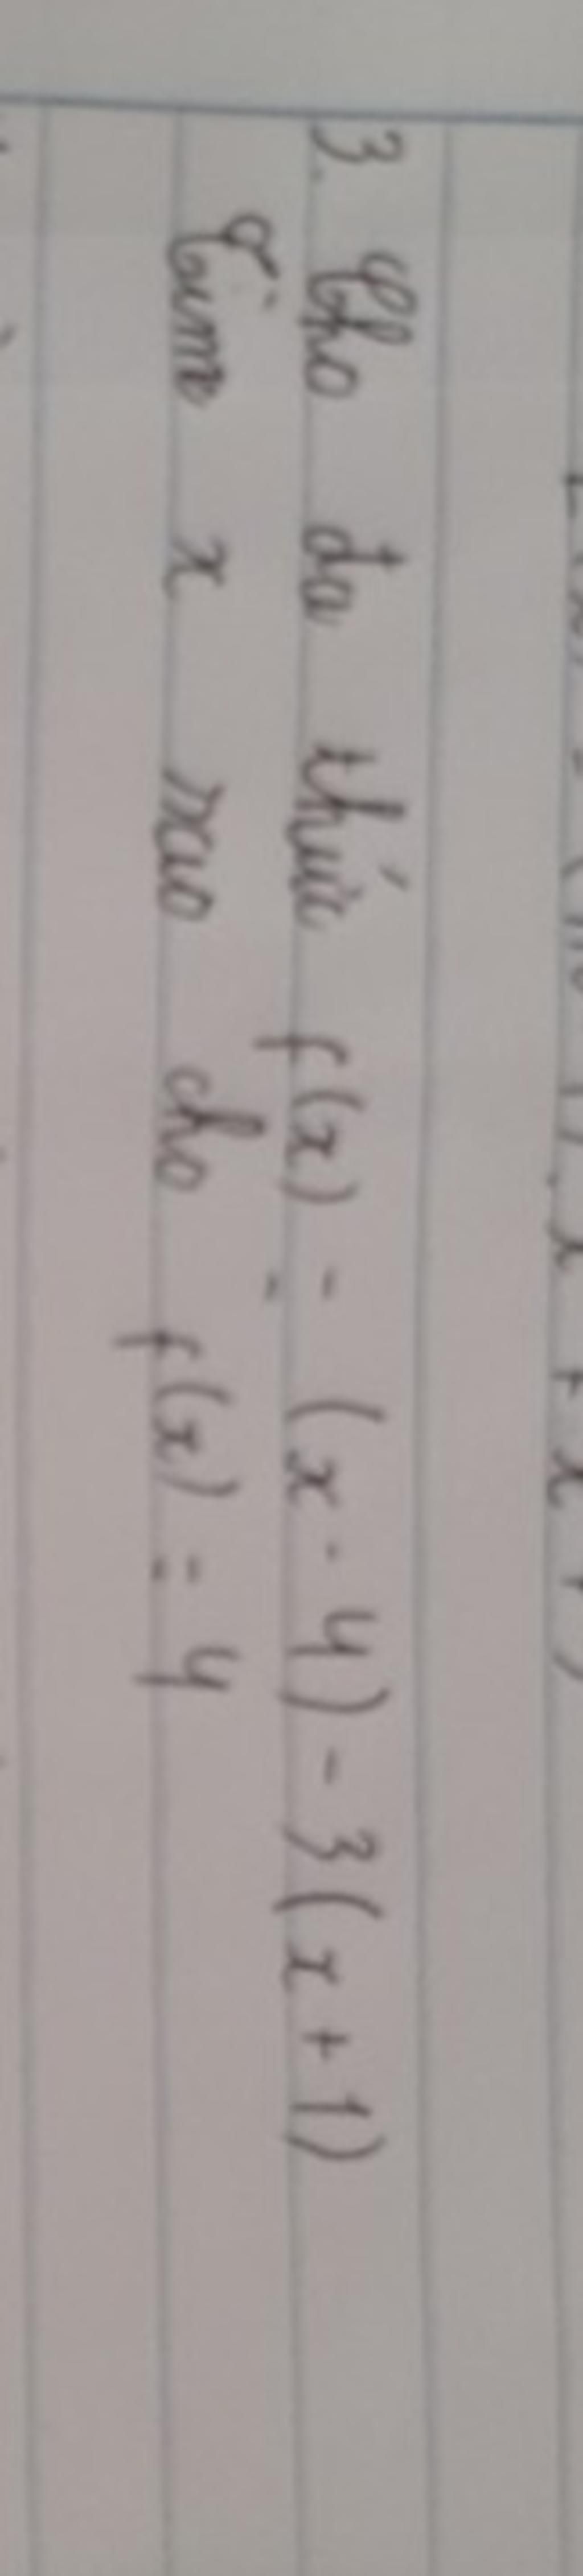 3. Cho đa thức f(x) = (x - 4) - 3(x + 1)
Tìm x sao cho f(x) = 4